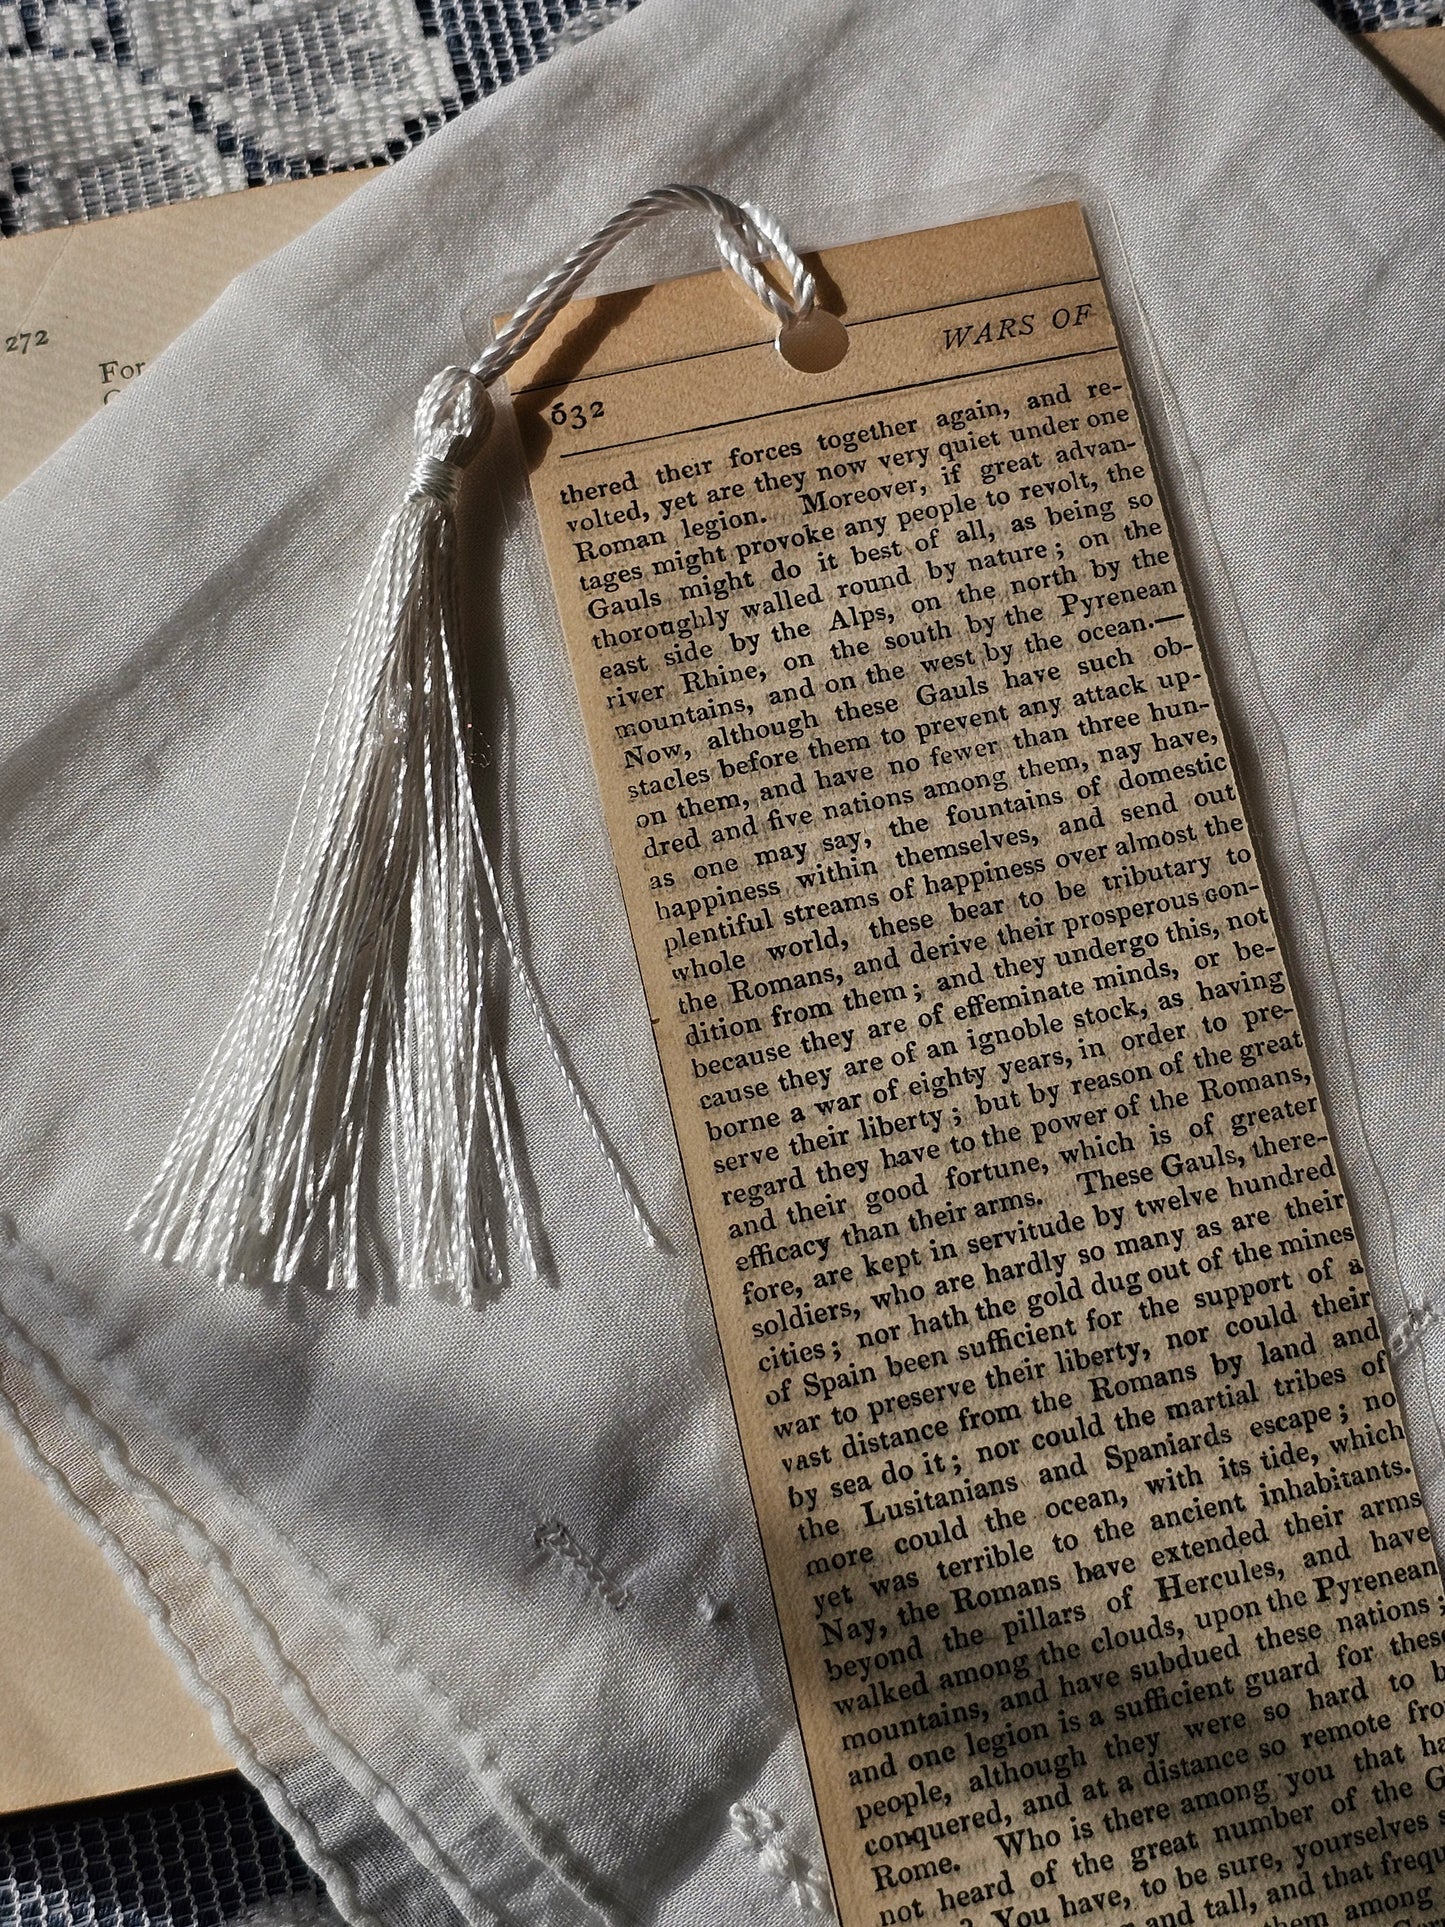 272
For
WARS OF
632
thered their forces together again, and re-
volted, yet are they now very quiet under one
Roman legion. Moreover, if great advan-
tages might provoke any people to revolt, the
Gauls might do it best of all, as being so
thoroughly walled round by nature; on the
east side by the Alps, on the north by the
river Rhine, on the south by the Pyrenean
mountains, and on the west by the ocean.—
Now, although these Gauls have such ob-
stacles before them to prevent any attack up-
on them, and have no fewer than three hun-
dred and five nations among them, nay have,
as one may say, the fountains of domestic
happiness within themselves, and send out
plentiful streams of happiness over almost the
whole world, these bear to be tributary to
the Romans, and derive their prosperous con-
dition from them; and they undergo this, not
because they are of effeminate minds, or be-
cause they are of an ignoble stock, as having
borne a war of eighty years, in order to pre-
serve their liberty; but by reason of the great
regard they have to the power of the Romans,
and their good fortune, which is of greater
efficacy than their arms. These Gauls, there-
fore, are kept in servitude by twelve hundred
soldiers, who are hardly so many as are their
cities; nor hath the gold dug out of the mines
of Spain been sufficient for the support of a
war to preserve their liberty, nor could their
vast distance from the Romans by land and
by sea do it; nor could the martial tribes of
the Lusitanians and Spaniards escape; no
more could the ocean, with its tide, which
yet was terrible to the ancient inhabitants.
Nay, the Romans have extended their arms
beyond the pillars of Hercules, and have
walked among the clouds, upon the Pyrenean
mountains, and have subdued these nations;
and one legion is a sufficient guard for these
people, although they were so hard to b
conquered, and at a distance so remote fro
Rome. Who is there among you that ha
not heard of the great number of the G
? You have, to be sure, yourselves s
and tall, and that frequ
them among